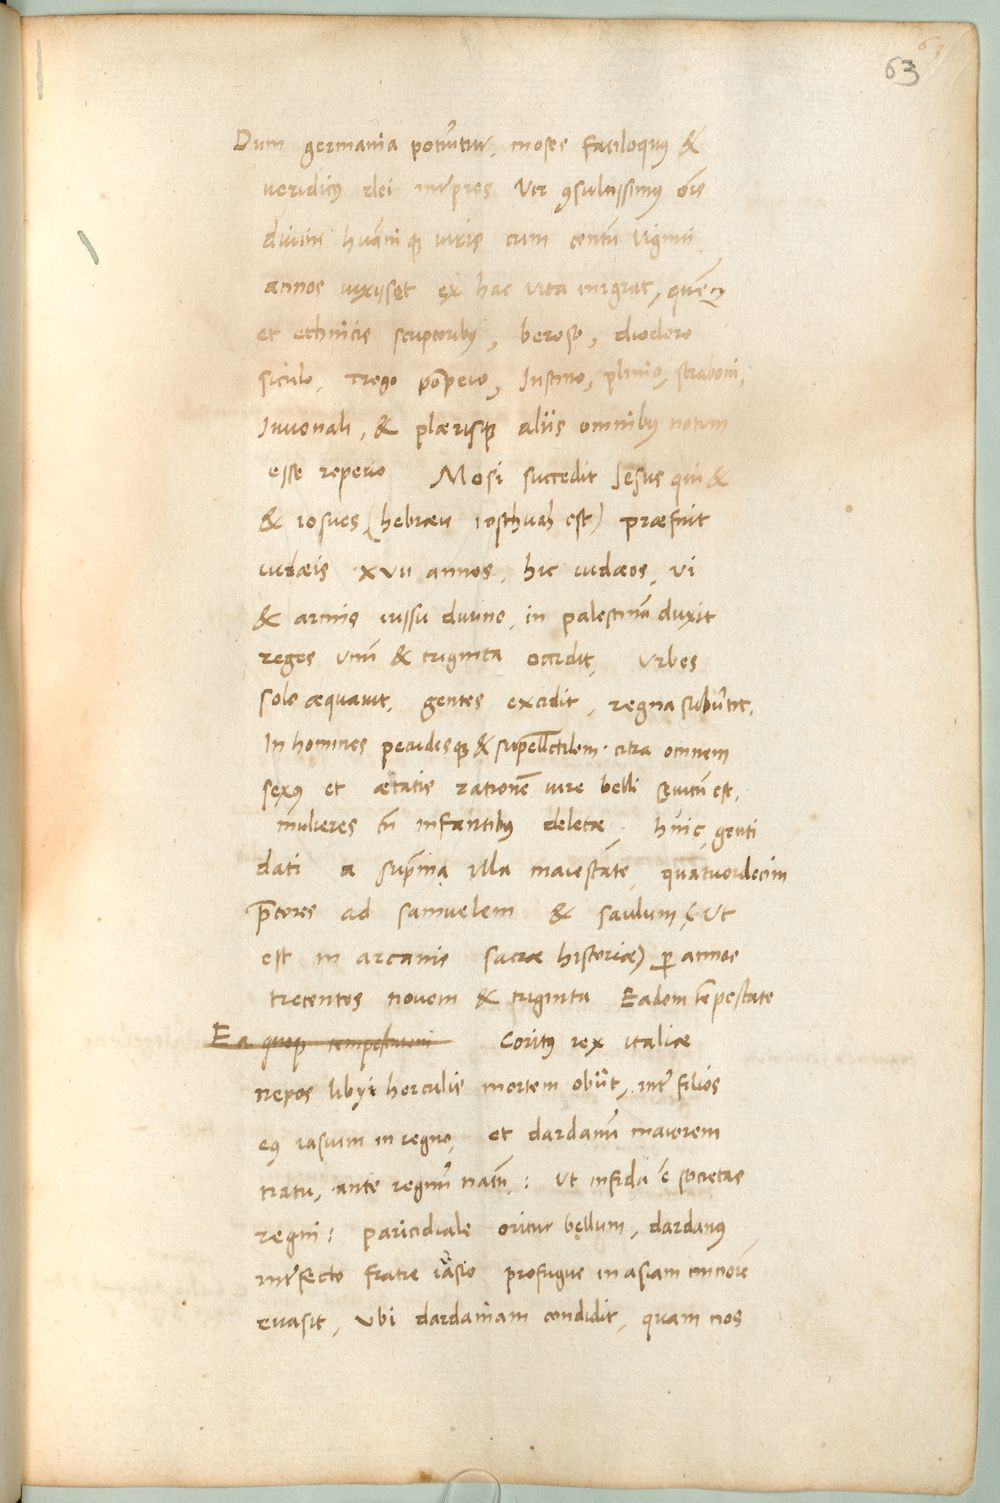 63
Dum germania potiũtur, moses fatiloquus &
veridicus dei int'pres vir 9sultissimus oĩs
diuini huãniq; iuris cum centũ viginti
annos uixijset ex hac vita migrat, quẽ
et ethnicis scriptoribus, beroso, diodoro
siculo, Trogo põpeio, Iustino, plinio, straboni,
Iuuenali, & plærisq; aliis omnibus notum
esse reperio Mosi succedit Jesus qui &
& iosues (hebræu iosthuah est) præfuit
iudæis XVII annos, hic iudæos, vi
& armis iussu diuino, in palestinã duxit
reges vnũ & triginta occidit, vrbes
solo æquauit, gentes excidit, regna subũtit,
In homines pecudesq; & supellectilem citra omnem
sexus et ætatis rationẽ iure belli sęuitũ est,
mulieres cũ infantibus deletæ, huic genti
dati a suprẽma illa maiestãte, quatuordecim
p̃tores ad samuelem & saulum (vt
est in arcanis sacræ historiæ) p annos
trecentos novem & triginta Eadem tẽpestate
Ea quoq; tempestate Coritus rex italiæ
nepos libyi herculis mortem obiit, int' filios
eius iasium in regno, et dardanũ maiorem
natu, ante regnũ natũ: vt infida ẽ societas
regni: paricidiale oritur bellum, dardanus
int'fecto fratre iasio profugus in asiam minorẽ
euasit, vbi dardaniam condidit, quam nos